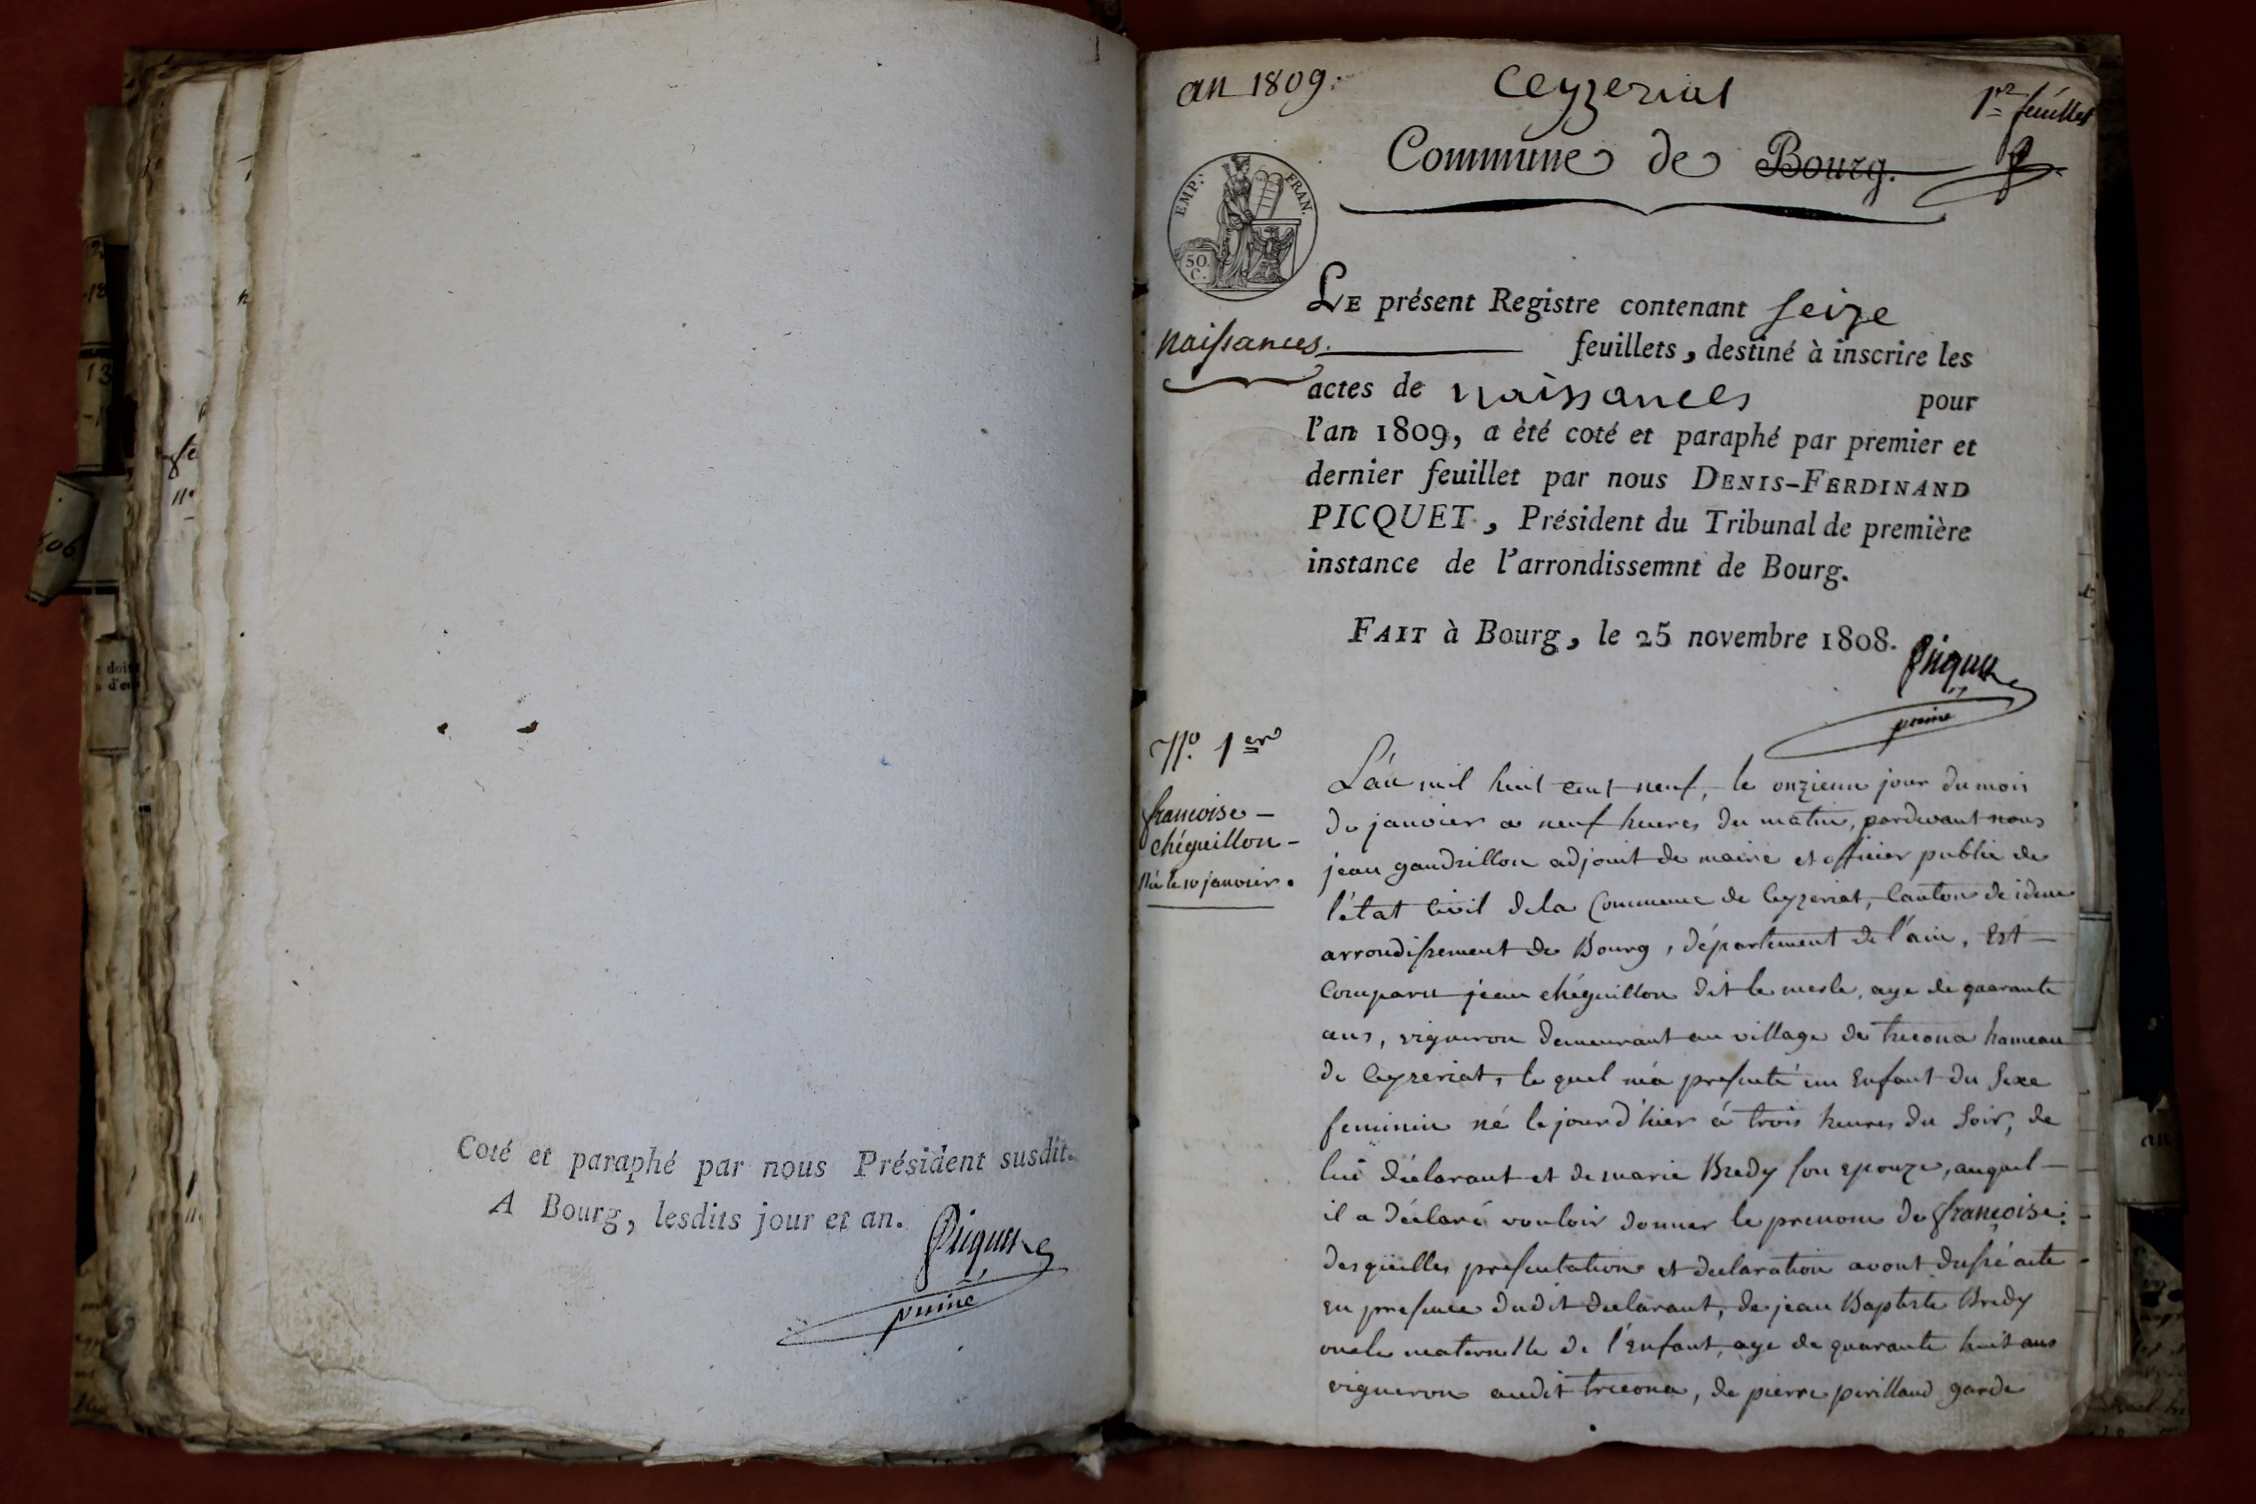 Coté et paraphé par nous Président susdit.
A Bourg, lesdits jour et an.
Picquet
prime
an 1809.
Ceyzeriat
1er feuillet
Commune de Bourg.
EMP. FRAN.
50 C.
LE présent Registre contenant seize
naissances.
feuillets, destiné à inscrire les
actes de naissances pour
l'an 1809, a été coté et paraphé par premier et
dernier feuillet par nous DENIS-FERDINAND
PICQUET, Président du Tribunal de première
instance de l'arrondissemnt de Bourg.
FAIT à Bourg, le 25 novembre 1808.
Picquet
prime
No. 1er
francoise
chéguillon
Née le 10 janvier.
L'an mil huit cent neuf, le onzieme jour du mois
de janvier a neuf heures du matin, pardevant nous
jean gaudrillon adjoint de maire et officier public de
l'état Civil dela Commune de Ceyzeriat, Canton de idem
arrondissement de Bourg, département de l'ain, Est
Comparu jean chéguillon dit le merle, age de quarante
ans, vigneron demeurant au village de treconà hameau
de Ceyzeriat, le quel m'a presenté un Enfant du Sexe
feminin né le jour d'hier à trois heures du Soir, de
lui déclarant et de marie Bredy son epouze, auquel
il a déclaré vouloir donner le prenom de françoise:
desquelles presentation et declaration avont dressé acte
En presence dudit declarant, de jean Baptiste Bredy
oncle maternelle de l'Enfant, age de quarante huit ans
vigneron audit trecona, de pierre perillaud garde